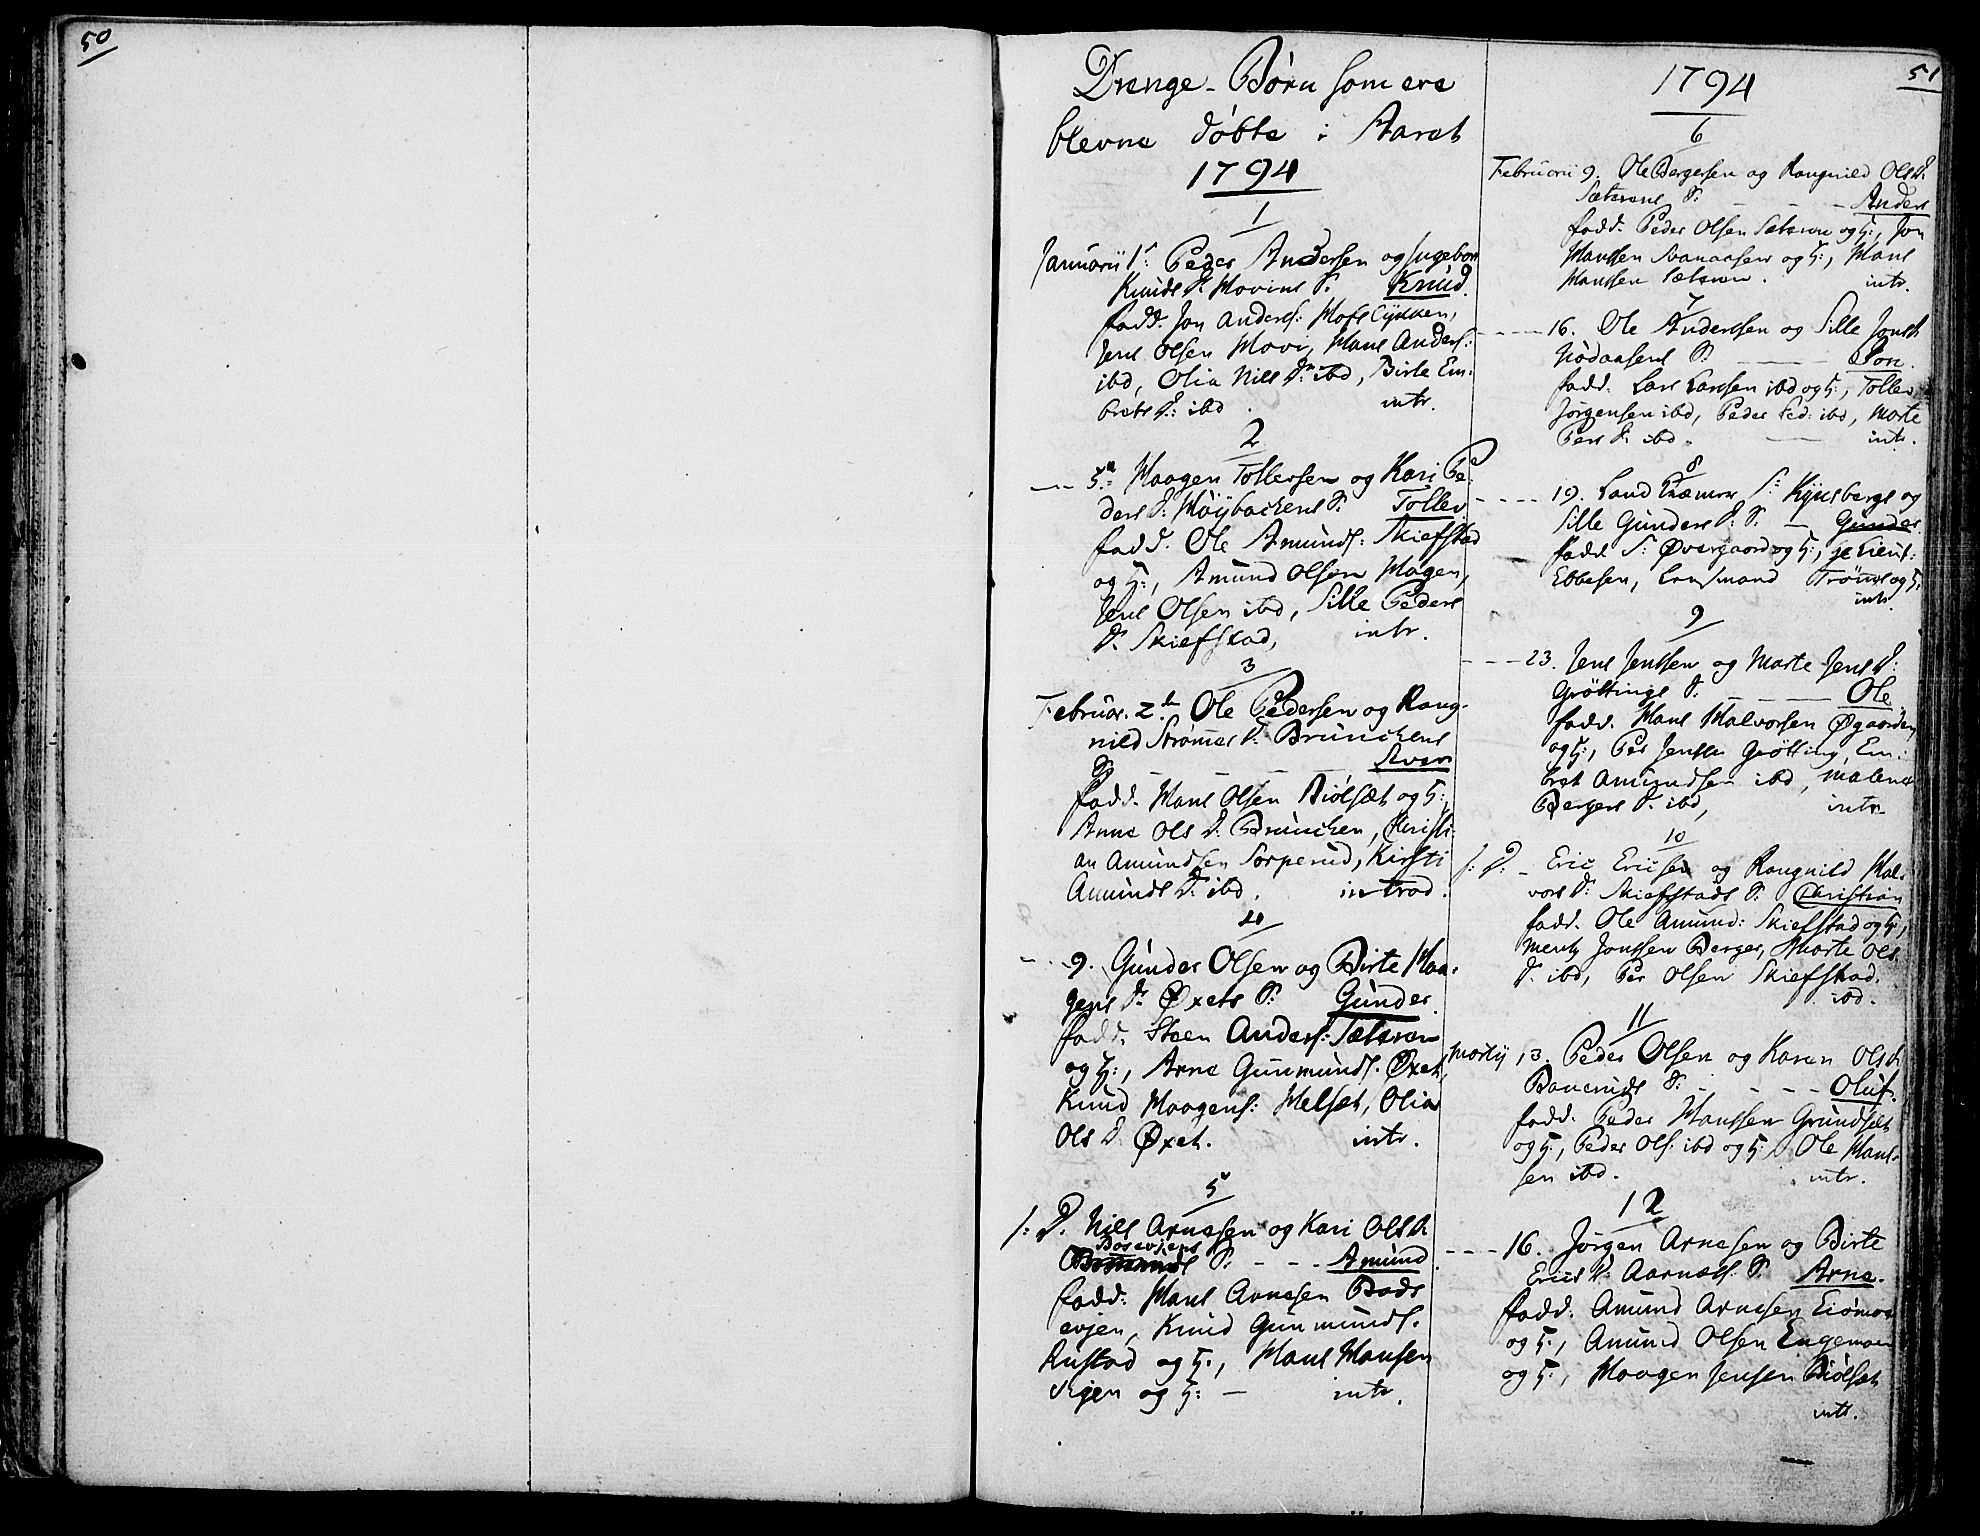 50
Drenge-Børn som ere
blevne døbte i Aaret
1794
1
Januarii 1: Peder Andersen og Ingebor
Knuds D. Hovins S. Knud.
fadd. Jon Anders:
Jens Olsen Hovi, Hans Anders:
ibd, Olia Nils D: ibd, Birte Em-
brets D: ibd. intr.
2
5: Haagen Tollersen og Kari Pe-
ders D. Høÿbachens S. Tollev.
fadd. Ole Amunds: Skiefstad
og H:, Amund Olsen Hagen,
Jens Olsen ibd, Sille Peders
D. Skiefstad, intr.
3
Februar. 2 Ole Pedersen og Rang-
nild Strømes D: Brunchens
S. - - - - Aver
fadd. Hans Olsen Biølset og H:,
Anne Ols D. Brunchen, Christi-
an Amundsen Sorperud, Kirsti
Amunds D. ibd. introd.
4
- - 9. Gunder Olsen og Birte Haa-
gens D. Øxets S: Gunder
fadd. Steen Anders: Sætren
og H:, Arne Gunmunds. Øxet,
Knud Haagens: Melset, Olia
Ols D. Øxet. intr.
5
s: D. Nils Arnesen og Kari Ols D.
Bosevjens
S: - - - Amund.
fadd. Hans Arnesen Bods
evjen, Knud Gunmunds.
Rustad og H., Hans Hansen
Vigen og H: - intr.
51
1794
6
Februarii 9. Ole Bergersen og Rangnild Ols D.
Sætrens S. - - - Anders
fadd. Peder Olsen Sætren og H:, Jon
Hansen Svenaasen og H:, Hans
Hansen Sætren. intr.
7
- - - 16. Ole Andersen og Sille Jons D.
Nødaasens S. - - Jon.
fadd. Lars Larsen ibd og H:, Tollev
Jørgensen ibd, Peder Ped: ibd, Marte
Pers D. ibd. - intr.
8
- - - 19. Land Kræmer S: Kynsbergs og
Sille Gunders D. S. - Gunder
fadd. S: Øvergaard og H:,
Ebbesen, Lensmand Trøns og H.
intr.
9
- - - 23. Jens Jensen og Marte Jens D:
Grøttings S. - Ole.
fadd. Hans Halvorsen Øgaarden
og H:, Per Jensen Grøtting, Em-
bret Amundsen ibd, Malene
Bergers D. ibd, intr.
10
s: D: - Eric Ericsen og Rangnild Hal-
vors D: Skiefstads S: Christian
fadd. Ole Amund: Skiefstad og H,
Mentz Jonsen Berger, Marte Ols
D. ibd, Per Olsen Skiefstad.
ibd.
11
Martij 13. Peder Olsen og Karen Ols D.
S: - - - - Oluf.
fadd. Peder Hansen Grundset
og H:, Peder Ols: ibd og H: Ole Han-
sen ibd. intr.
12
- - - 16. Jørgen Arnesen og Birte
Erics D. Aarnæs: S. Arne.
fadd. Amund Arnesen Eiømoe
og H:, Amund Olsen Engemoen
og H:, Haagen Jensen Biølset
intr.